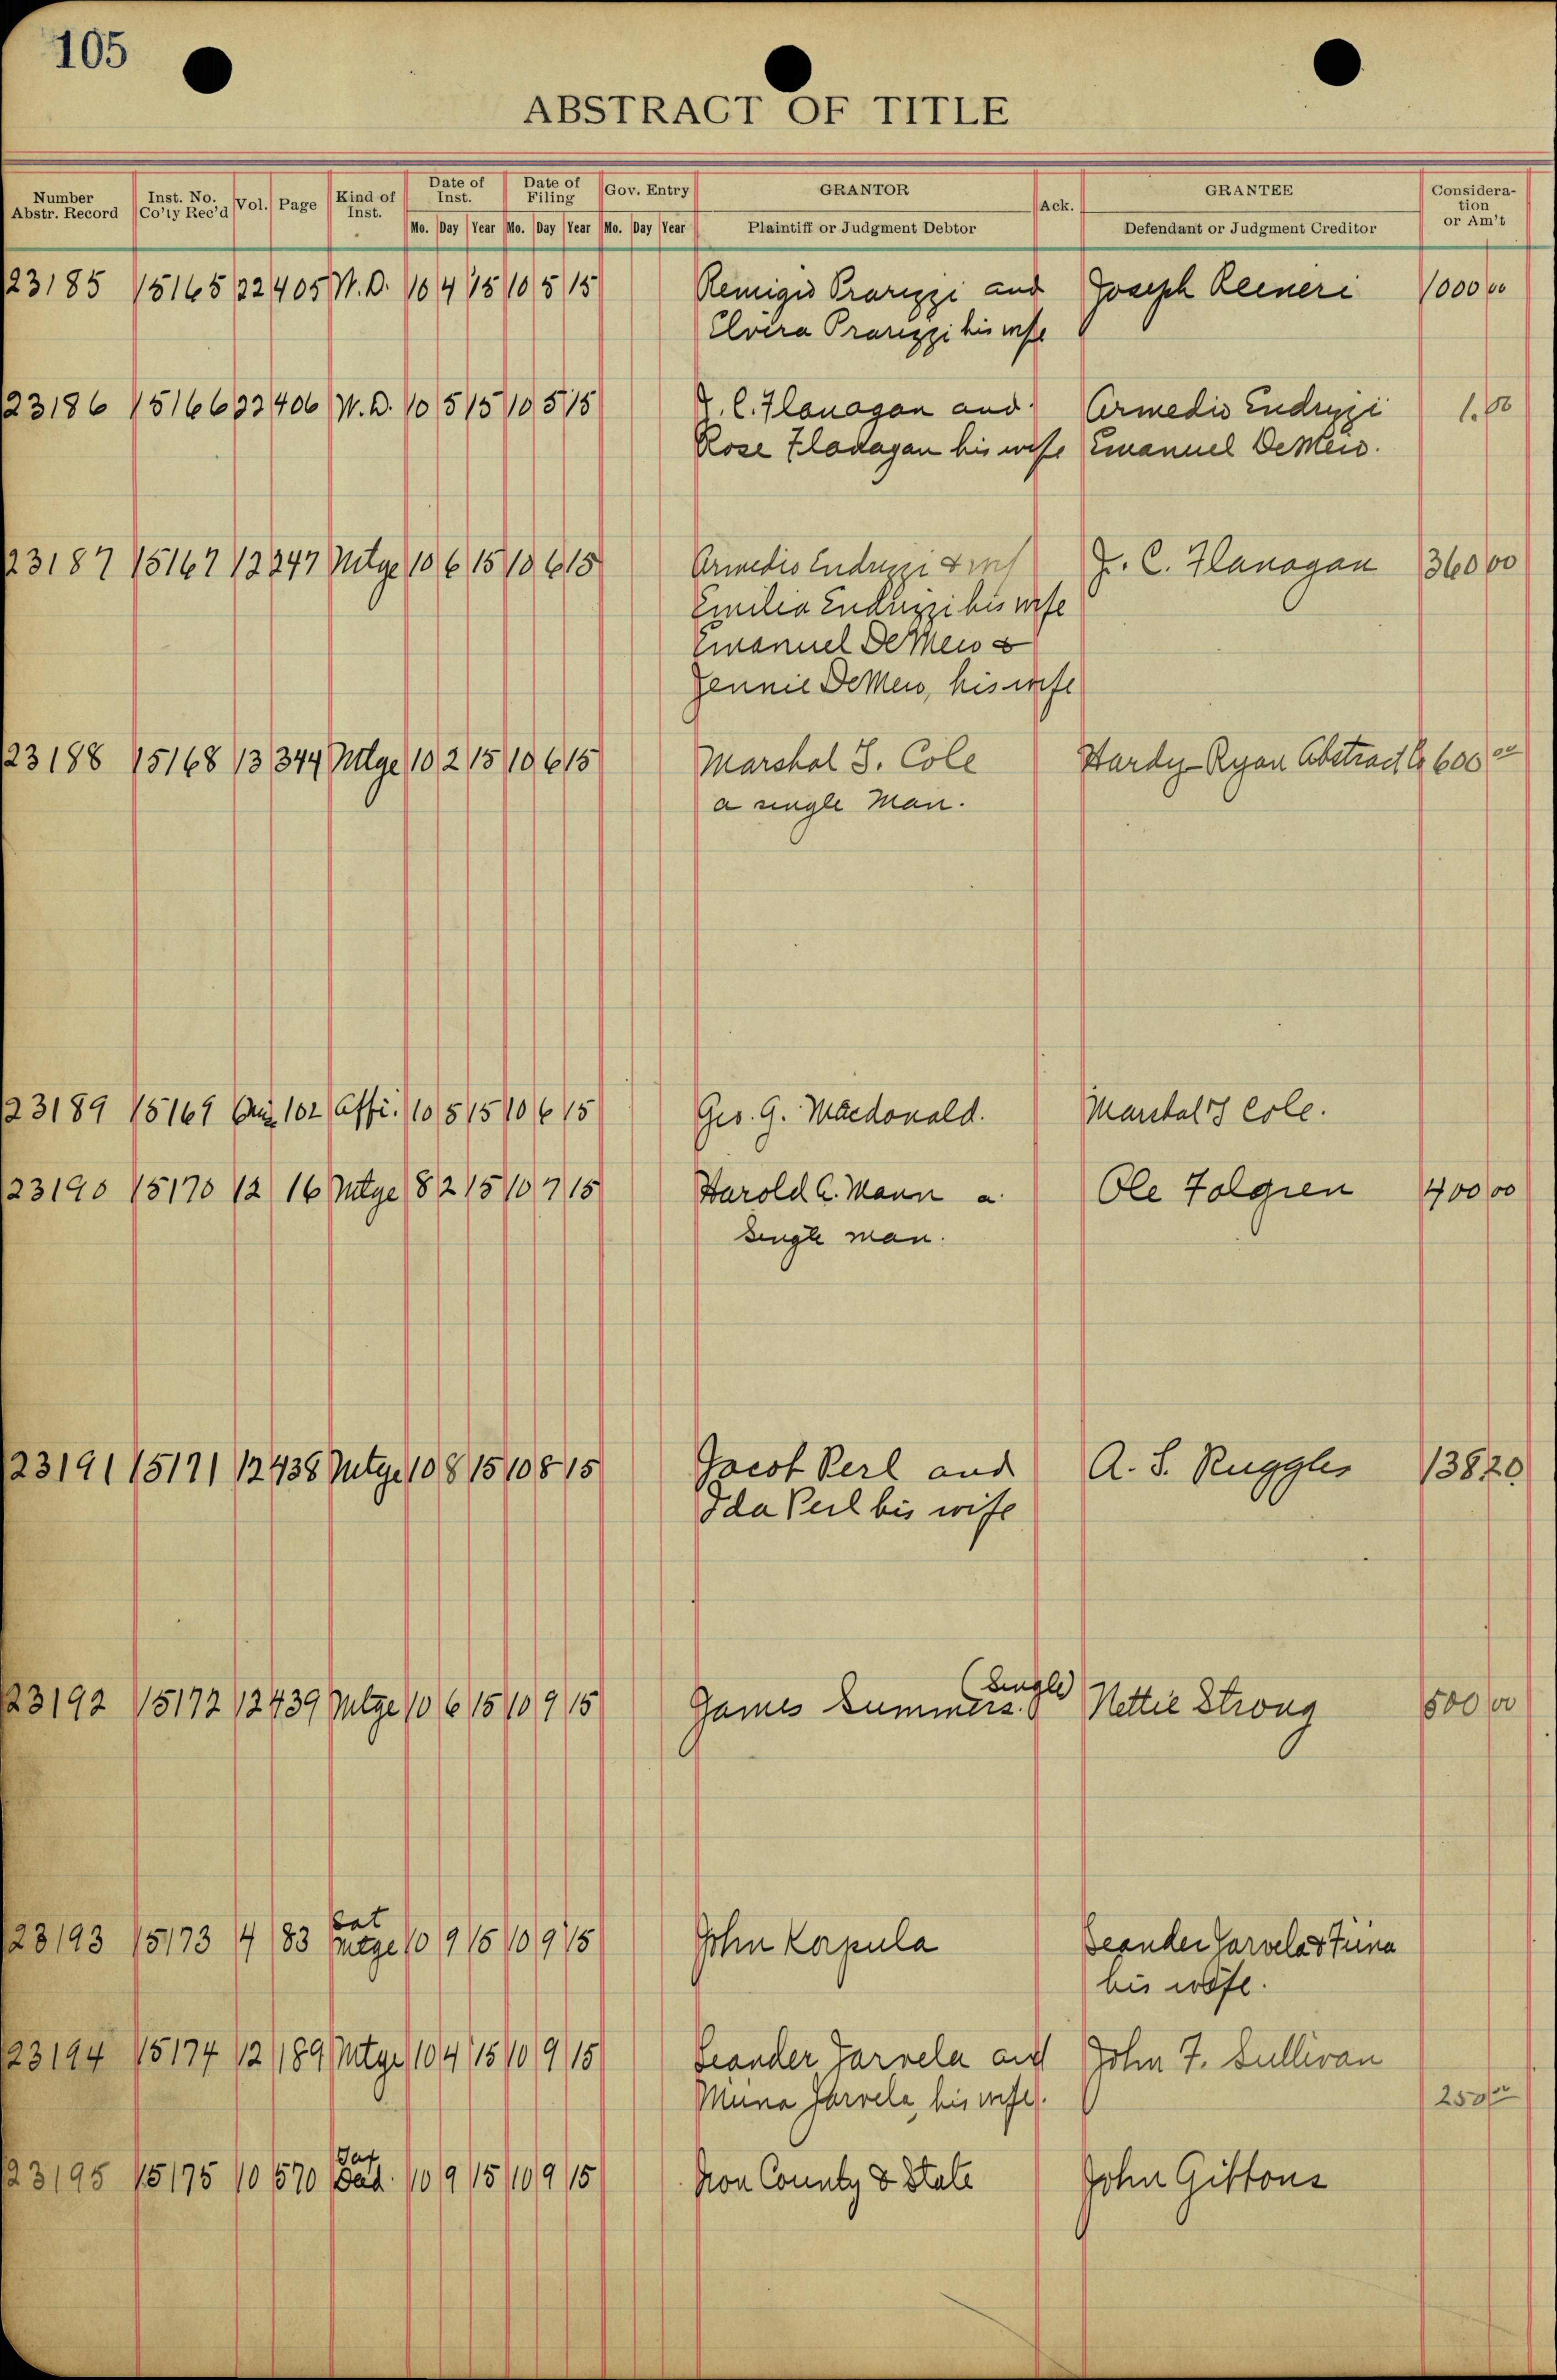 105
ABSTRACT OF TITLE
Number Abstr. Record Inst. No. Co'ty Rec'd Vol. Page Kind of Inst. Date of Inst. Date of Filing Gov. Entry GRANTOR Ack. GRANTEE Consideration or Am't
Mo. Day Year Mo. Day Year Mo. Day Year Plaintiff or Judgment Debtor Defendant or Judgment Creditor
23185 15165 22 405 W.D. 10 4 15 10 5 15 Remigio Prarizzi and Joseph Reineri 1000 00
Elvira Prarizzi his wife
23186 15166 22 406 W.D. 10 5 15 10 5 15 J. C. Flanagan and Armedio Endrizzi 1.00
Rose Flanagan his wife Emanuel DeMeio.
23187 15167 12 247 Mtge 10 6 15 10 6 15 Armedio Endrizzi & J. C. Flanagan 360 00
Emilia Endrizzi his wife
Emanuel DeMeio &
Jennie DeMeio, his wife
23188 15168 13 344 Mtge 10 2 15 10 6 15 Marshal S. Cole Hardy-Ryan Abstract Co 600 00
a single Man.
23189 15169 102 Affi. 10 5 15 10 6 15 Geo. G. Macdonald. Marshal S Cole.
23190 15170 12 16 Mtge 8 2 15 10 7 15 Harold A. Mann a Ole Folgren 400 00
single man.
23191 15171 12 438 Mtge 10 8 15 10 8 15 Jacob Perl and A. S. Ruggles 138 20
Ida Perl his wife
23192 15172 12 439 Mtge 10 6 15 10 9 15 James Summers. (Single) Nettie Strong 500 00
23193 15173 4 83 Sat Mtge 10 9 15 10 9 15 John Korpula Leander Jarvela & Fiina
his wife.
23194 15174 12 189 Mtge 10 4 15 10 9 15 Leander Jarvela and John F. Sullivan
Miina Jarvela, his wife. 250 00
23195 15175 10 570 Tax Ded. 10 9 15 10 9 15 Iron County & State John Gibbons